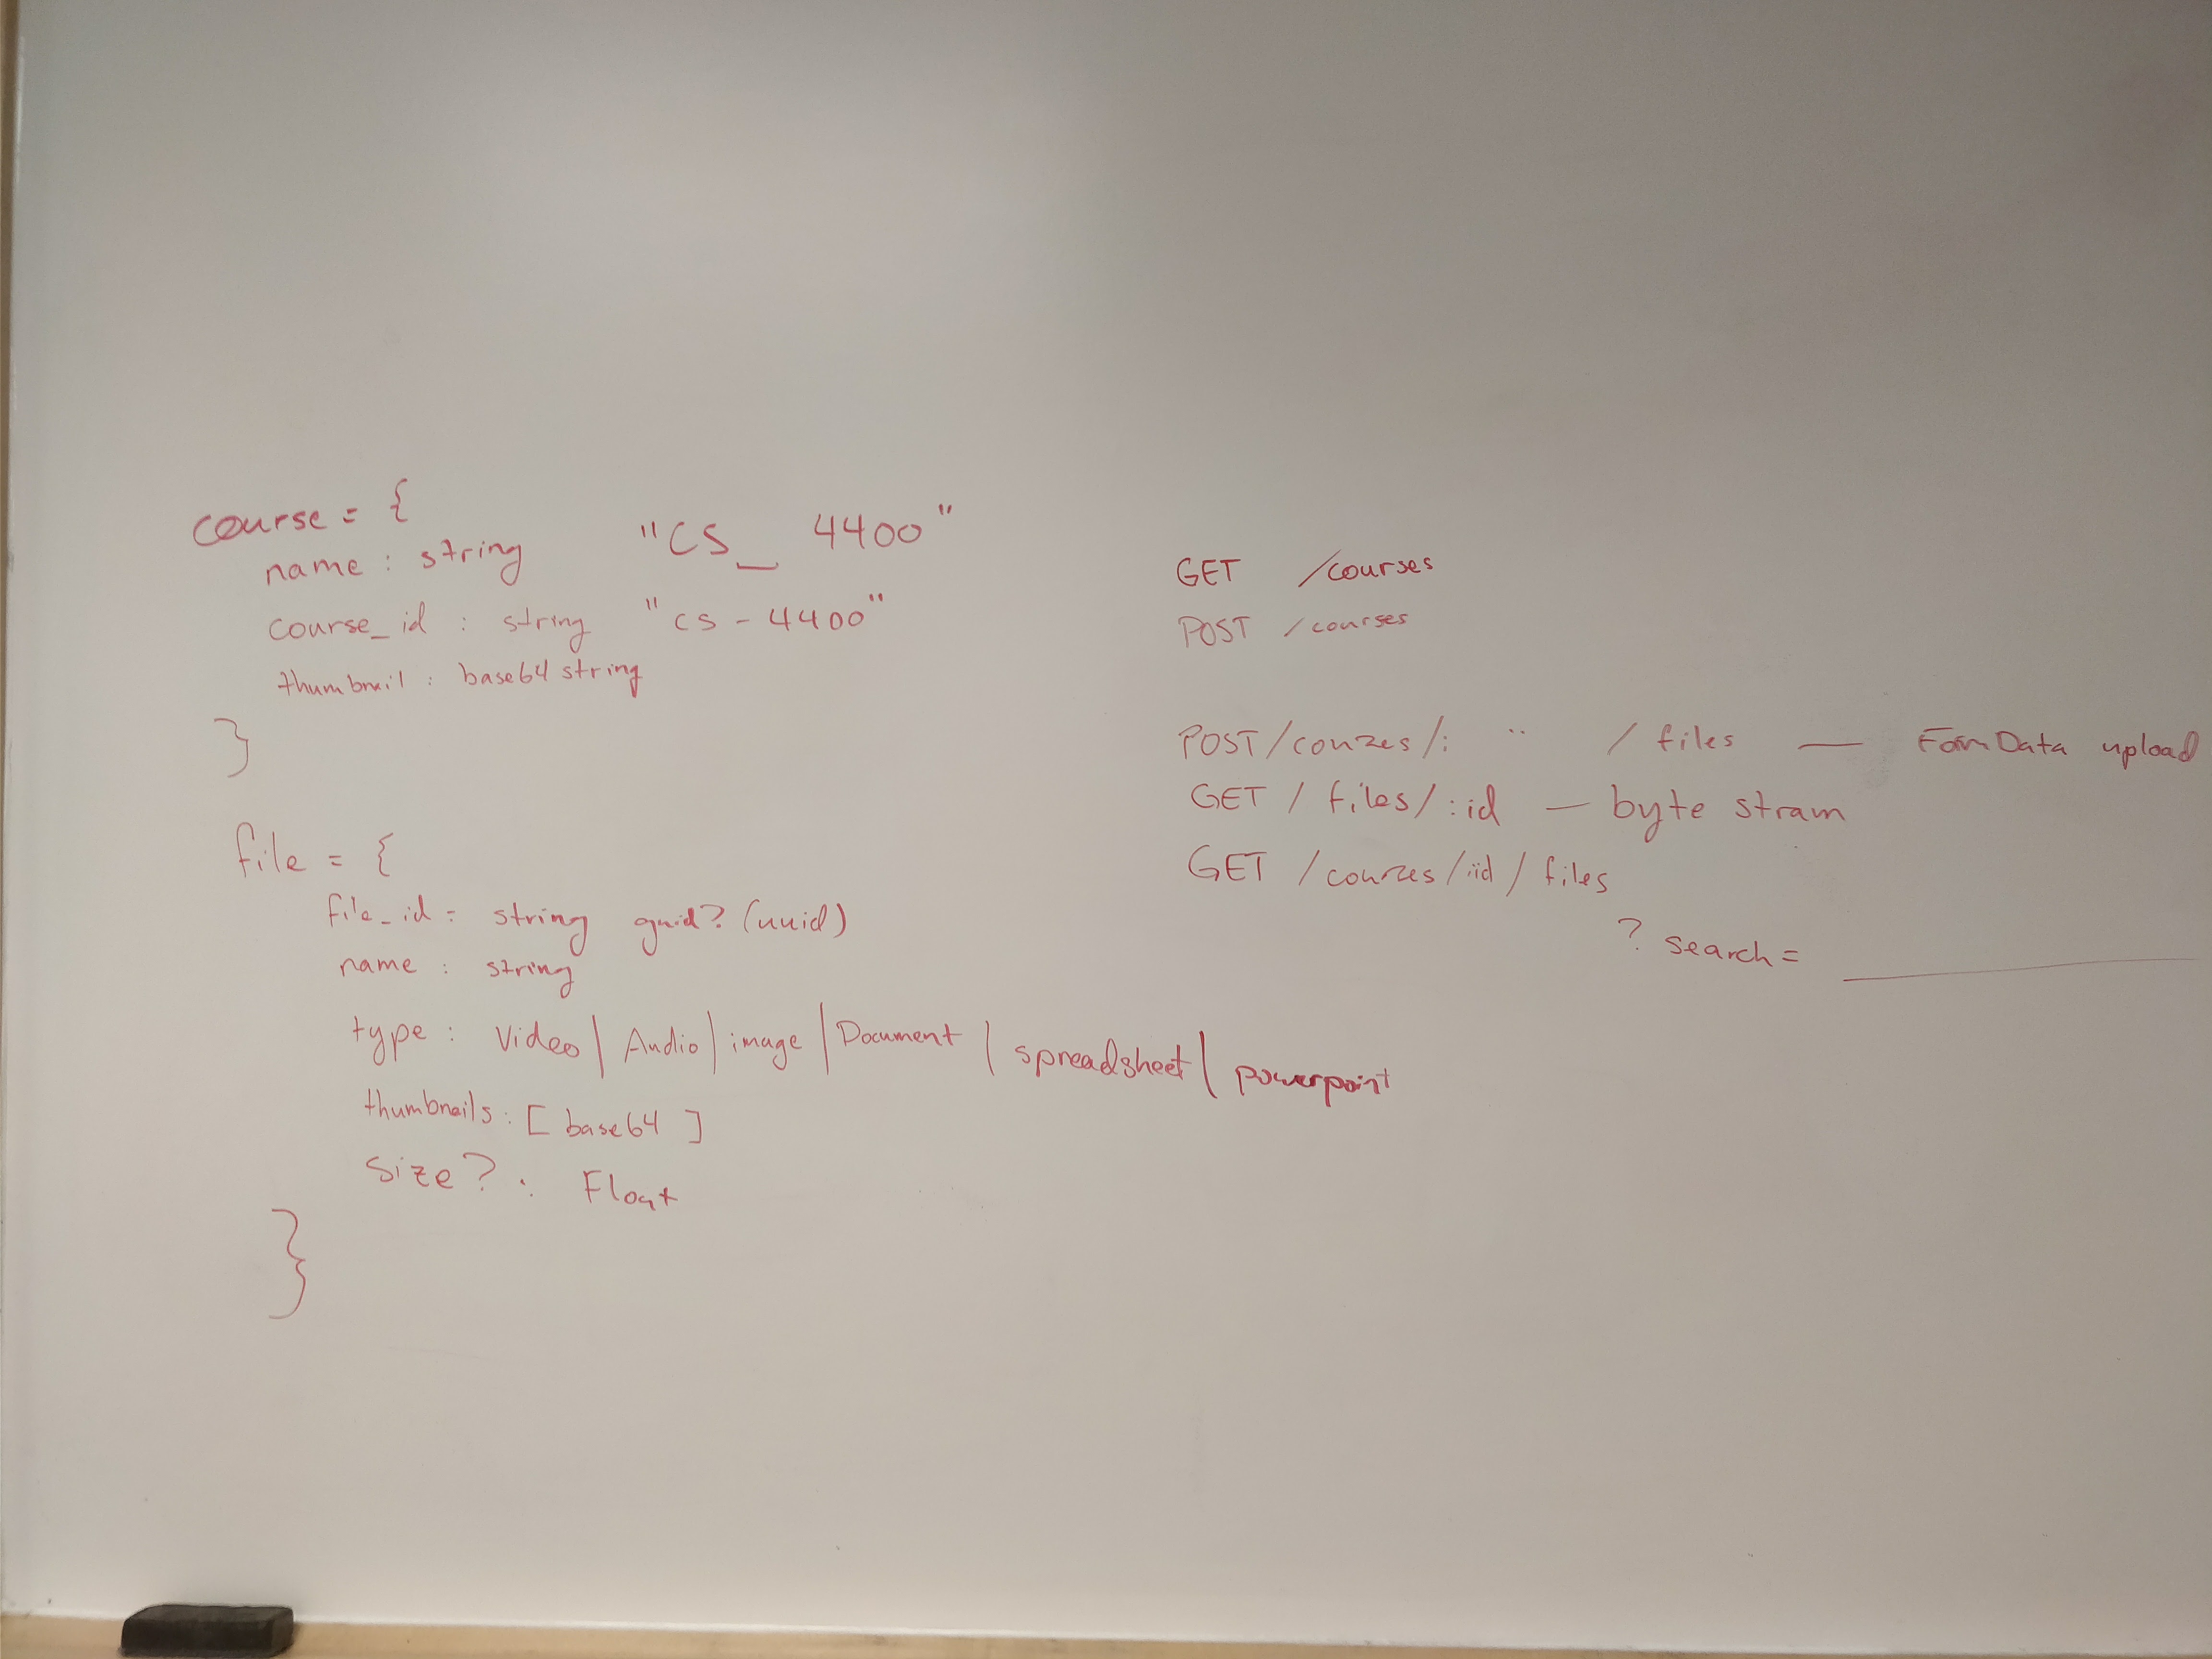 course = {
name : string "CS_ 4400"
course_id : string "cs-4400"
thumbnail : base64 string
}
file = {
file_id = string guid? (uuid)
name : string
type : Video | Audio | image | Document | spreadsheet | powerpoint
thumbnails : [ base64 ]
size? : Float
}
GET /courses
POST /courses
POST /courses/: " /files — FormData upload
GET / files/:id — byte stram
GET /courses/:id/files
? search = ____